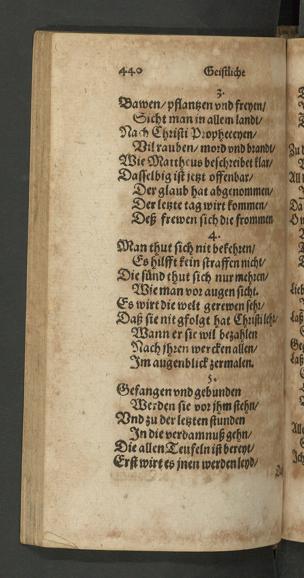 440 Geistliche
3.
Bawen/ pflantzen vnd freyen/
Sicht man in allem landt/
Nach Christi Propheceyen/
Vil rauben/ mord vnd brandt/
Wie Mattheus beschreibet klar/
Dasselbig ist jetzt offenbar/
Der glaub hat abgenommen/
Der letzte tag wirt kommen/
Deß frewen sich die frommen
4.
Man thut sich nit bekehren/
Es hilfft kein straffen nicht/
Die sünd thut sich nur mehren/
Wie man vor augen sicht.
Es wirt die welt gerewen sehr/
Daß sie nit gfolgt hat Christi lehr/
Wann er sie wil bezahlen
Nach jhren wercken allen/
Im augenblick zermalen.
5.
Gefangen vnd gebunden
Werden sie vor jhm stehn/
Vnd zu der letzten stunden
In die verdamnuß gehn/
Die allen Teufeln ist bereyt/
Erst wirt es jnen werden leyd/